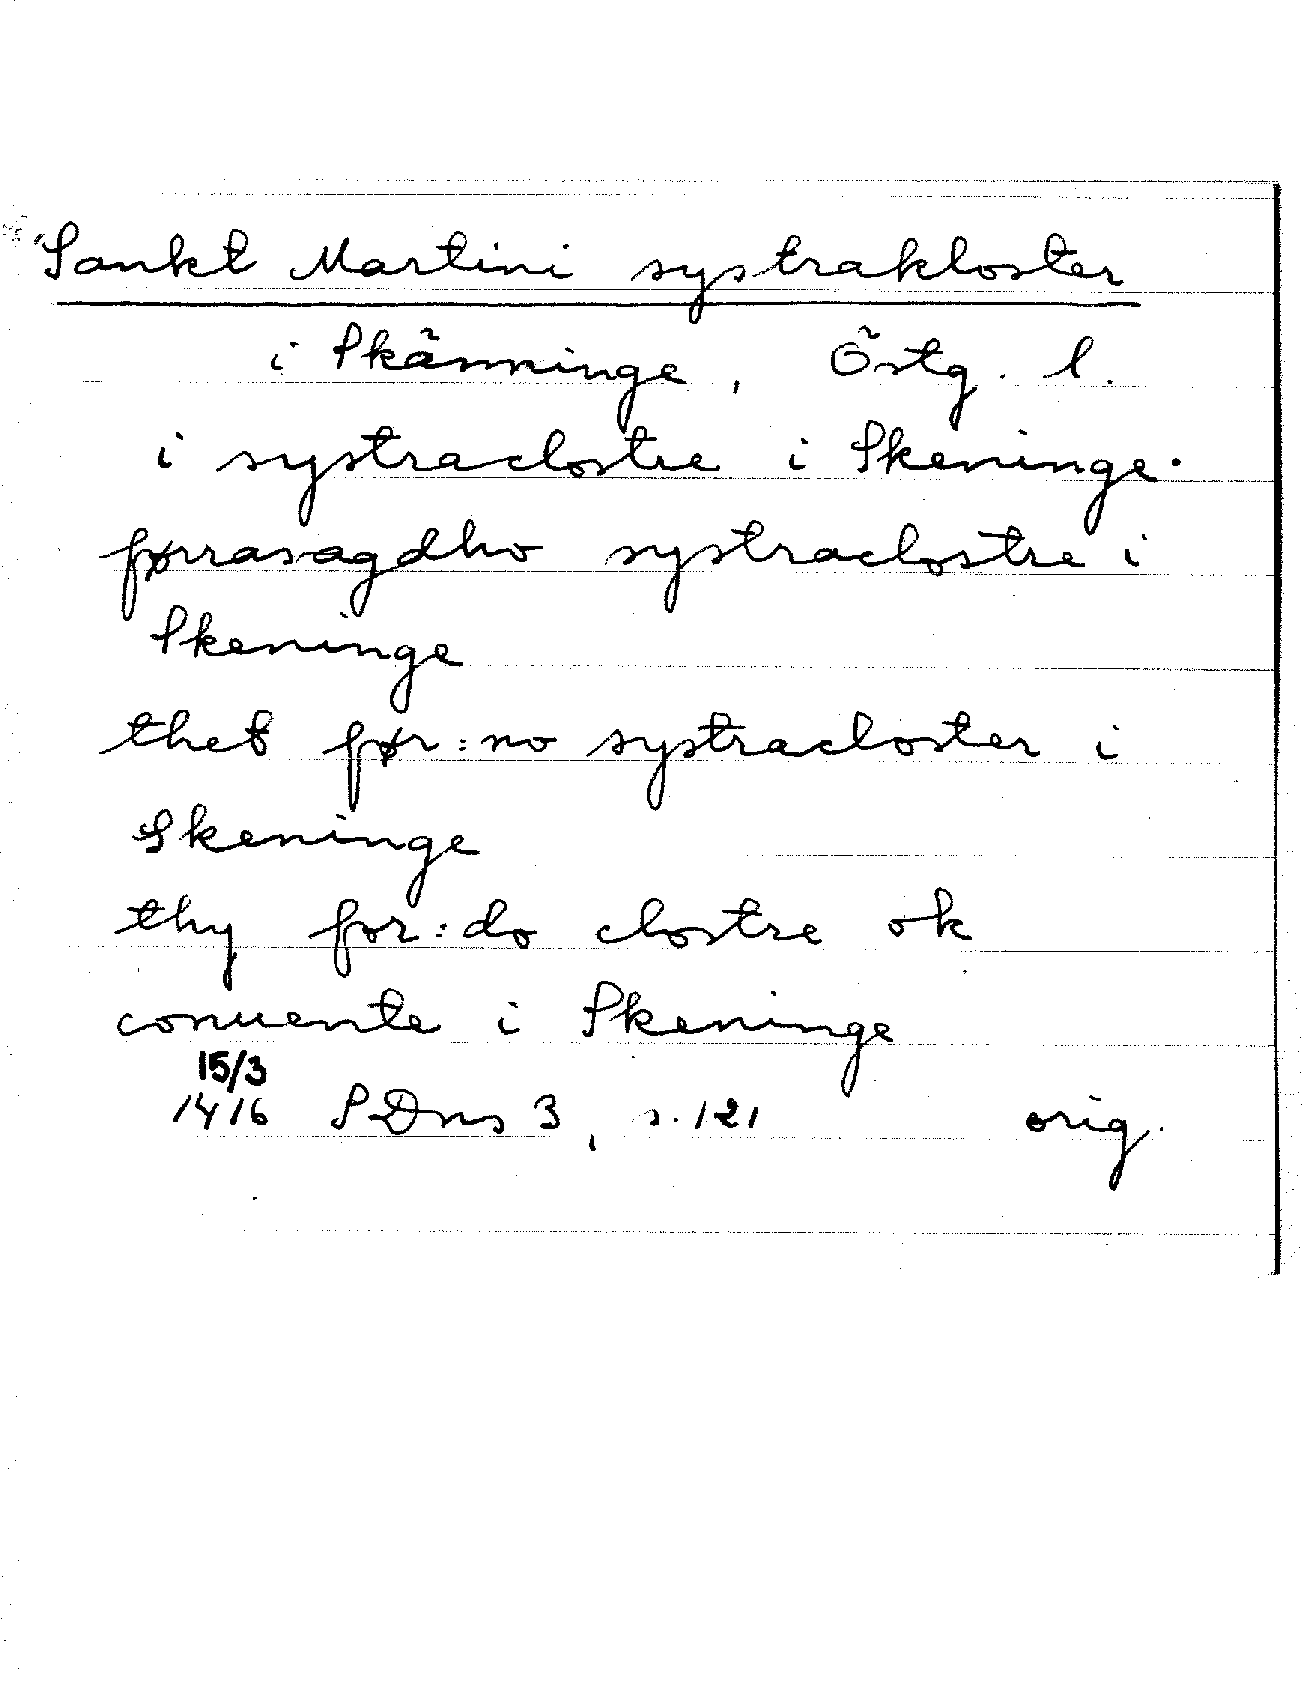 "Sankt Martini systrakloster
i Skänninge, Östg. l.
i systraclostre i Skeninge.
førrasagdho systraclostre i
Skeninge
thet før:no systracloster i
Skeninge
thy for:do clostre ok
conuente i Skeninge
15/3
1416 SDns 3, s. 121 orig.